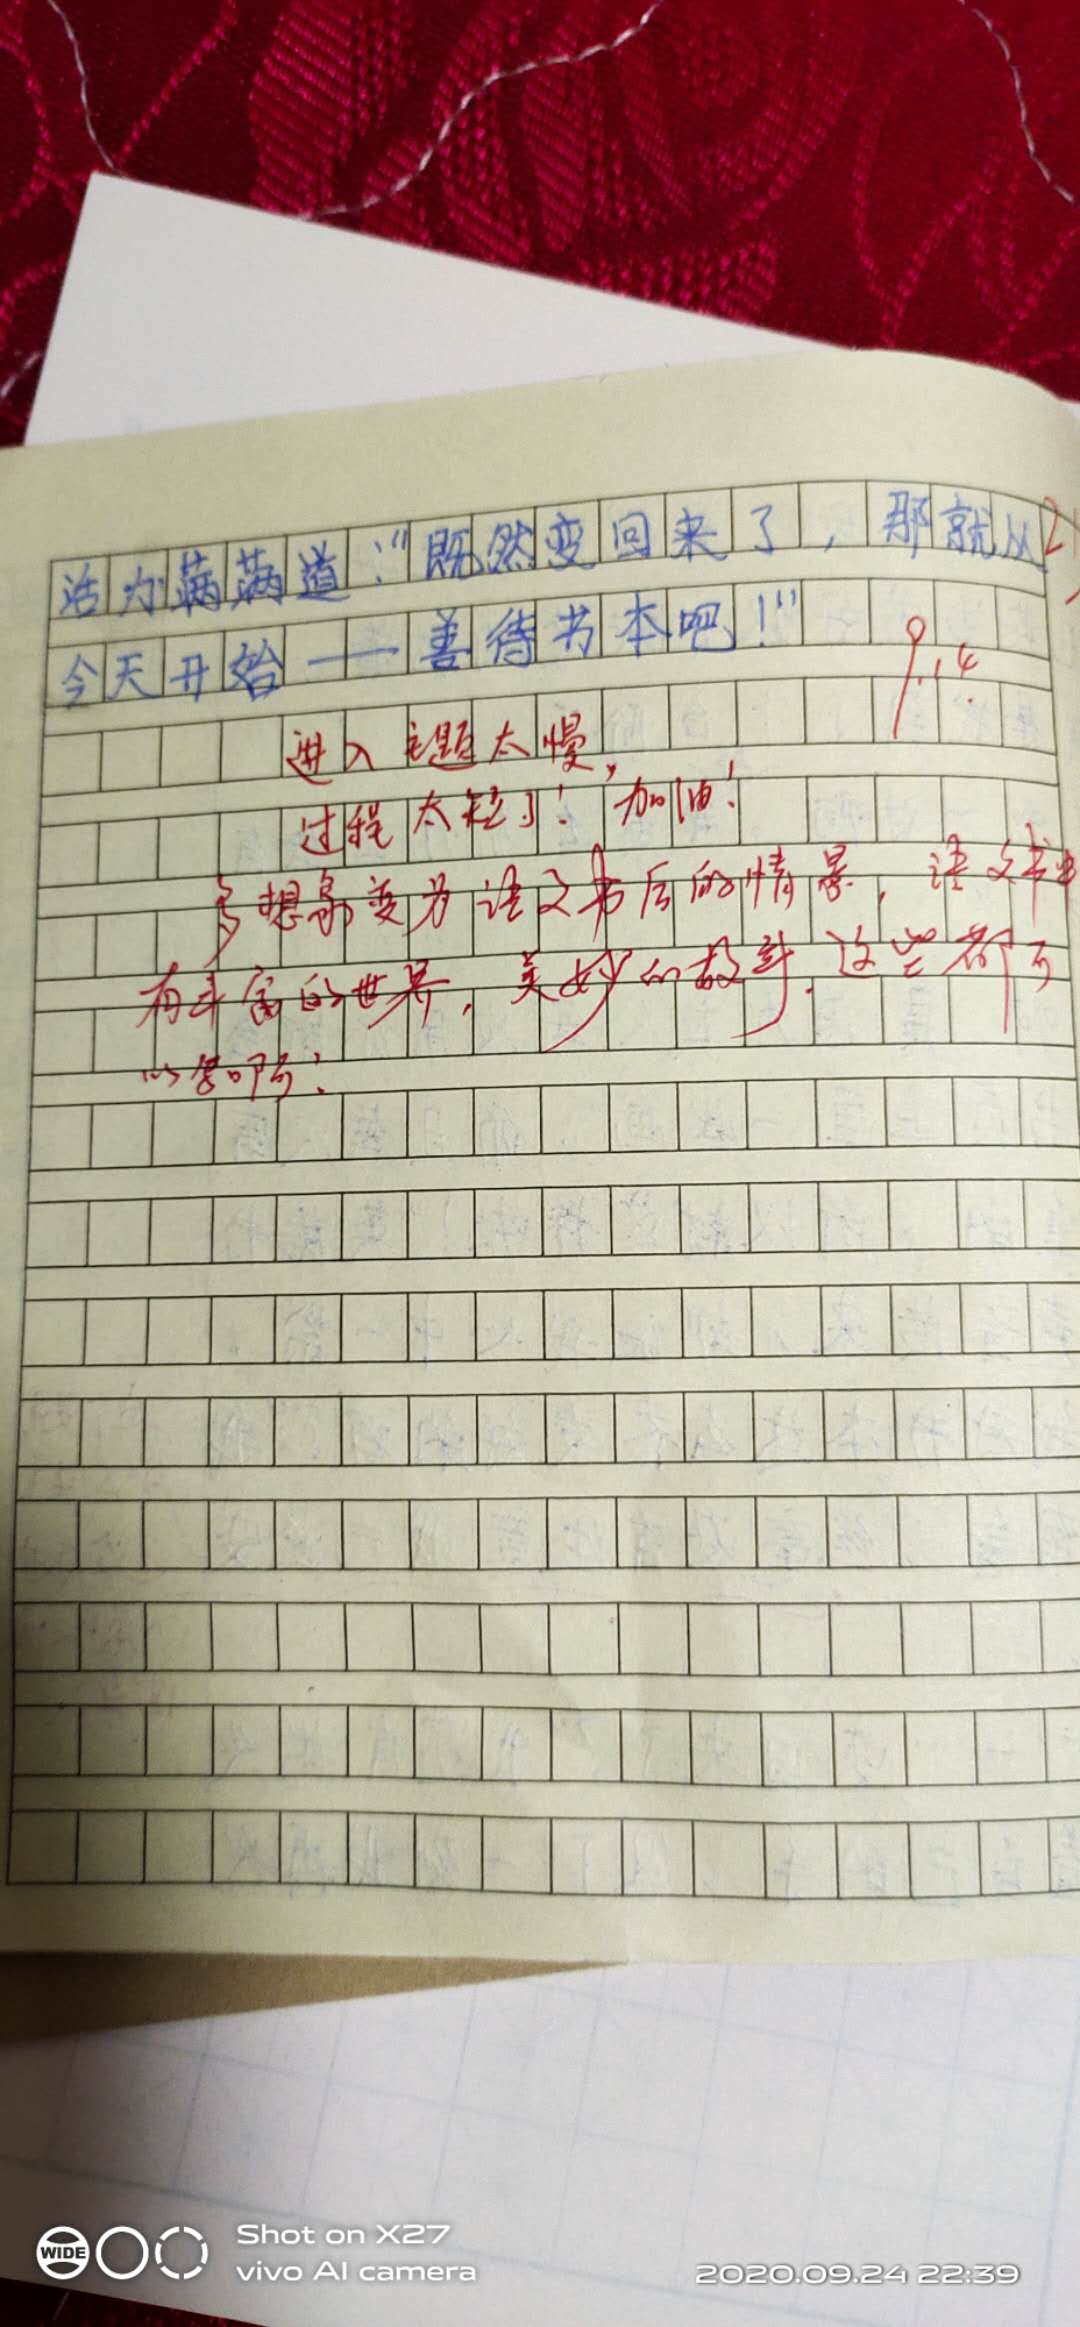 活力满满道：“既然变回来了，那就从
今天开始——善待书本吧！”
9.14.
进入主题太慢，
过程太短了！加油！
多想象变为语文书后的情景，语文书中
有丰富的世界，美妙的故事．这些都可
以写啊！
WIDE
Shot on X27
vivo AI camera
2020.09.24 22:39